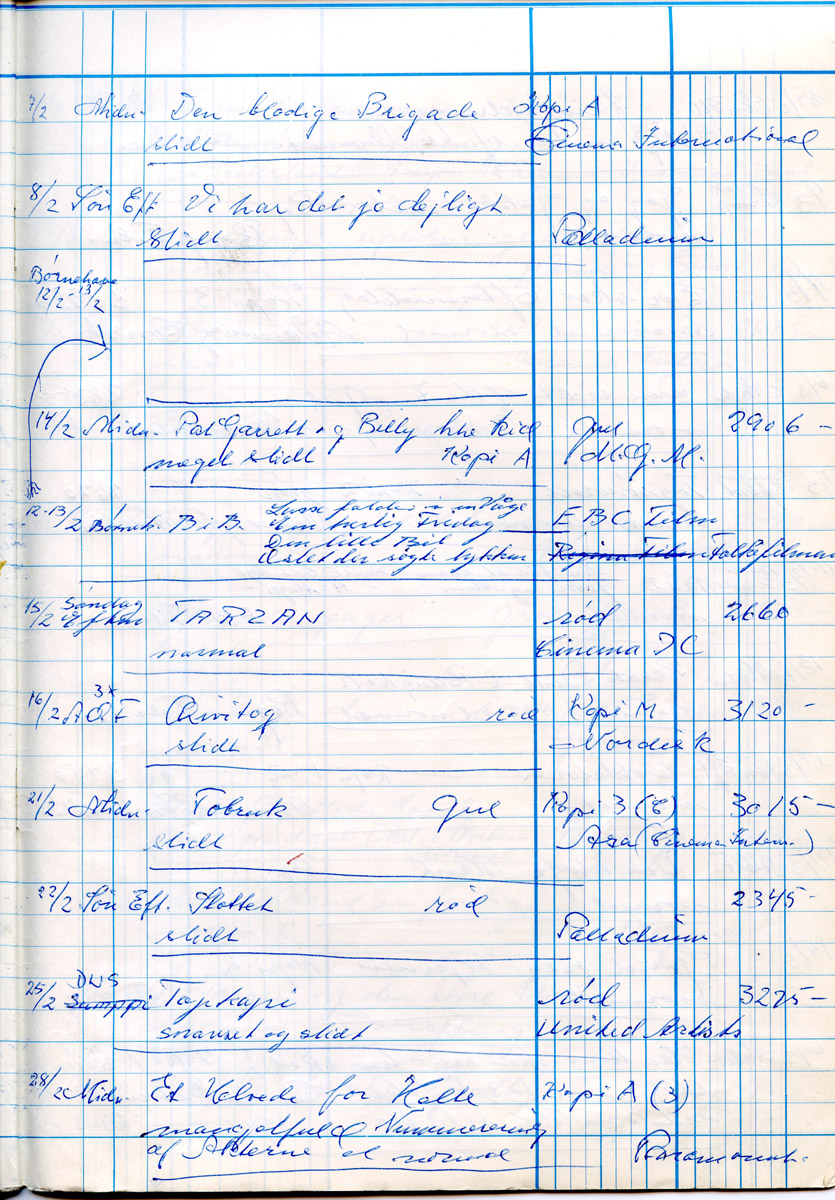 7/2 Midn. Den blodige Brigade Kopi A
slidt Cinema International
8/2 Søn Eft Vi har det jo dejligt
slidt Palladium
Børnehave
12/2 - 13/2
14/2 Midn. Pat Garrett og Billy the Kid gul 2906 -
meget slidt Kopi A M.G.M.
12-13/2 Børneh. BiB. Lasse falder i
En herlig Fredag EBC Film
Den lille Bil
der søgte lykken Regina Film Folkefilmen
15/2 Søndag Eftm TARZAN rød 2660
normal Cinema IC
16/2 3x AOF Qivitoq rød Kopi M 3120 -
slidt Nordisk
21/2 Midn. Tobruk gul Kopi 3 (C) 3015 -
slidt Asa (Cinema Intern.)
22/2 Søn Eft. Slottet rød 2345 -
slidt Palladium
DWS
25/2 Topkapi rød 3275 -
snavset og slidt United Artists
28/2 Midn. Et Helvede for Kopi A (3)
mangelfuld Nummerering
af Akterne normal Paramount.